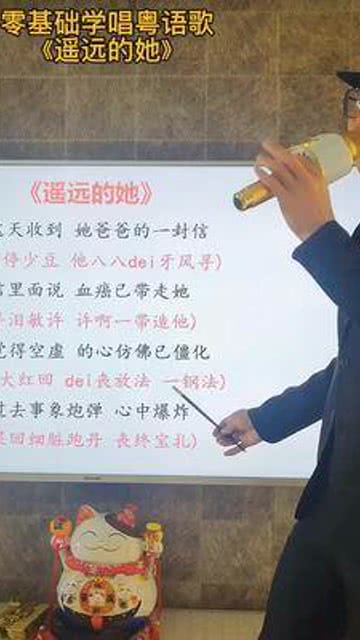 零基础学唱粤语歌
《遥远的她》
《遥远的她》
天收到 她爸爸的一封信
停少豆 他八八dei牙风寻)
信里面说 血癌已带走她
泪敏许 许啊一带造他)
觉得空虚 的心仿佛已僵化
大红回 dei丧放法 一钢法)
过去事象炮弹 心中爆炸
回细脏跑丹 丧终宝扎)